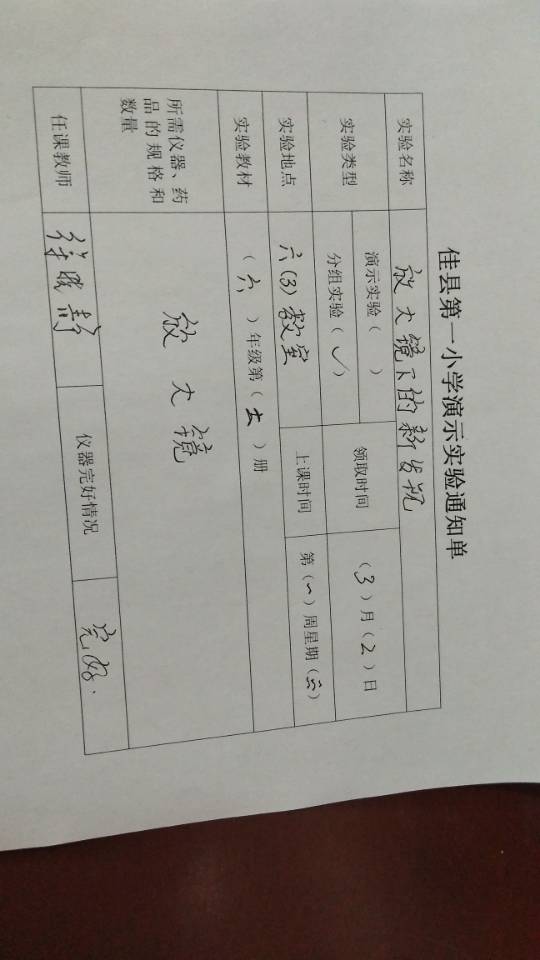 佳县第一小学演示实验通知单
实验名称 放大镜下的新发现
实验类型 演示实验（ ） 领取时间 （3）月（2）日
分组实验（✓）
实验地点 六(3)教室 上课时间 第（一）周星期（二）
实验教材 （六）年级第（ ）册
所需仪器、药品的规格和数量 放大镜
任课教师 仪器完好情况 完好.